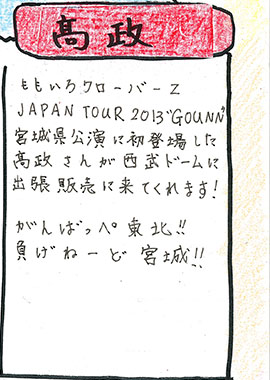 高政
ももいろクローバーZ
JAPAN TOUR 2013"GOUNN"
宮城県公演に初登場した
高政さんが西武ドームに
出張販売に来てくれます!
がんばっぺ東北!!
負げねーど宮城!!